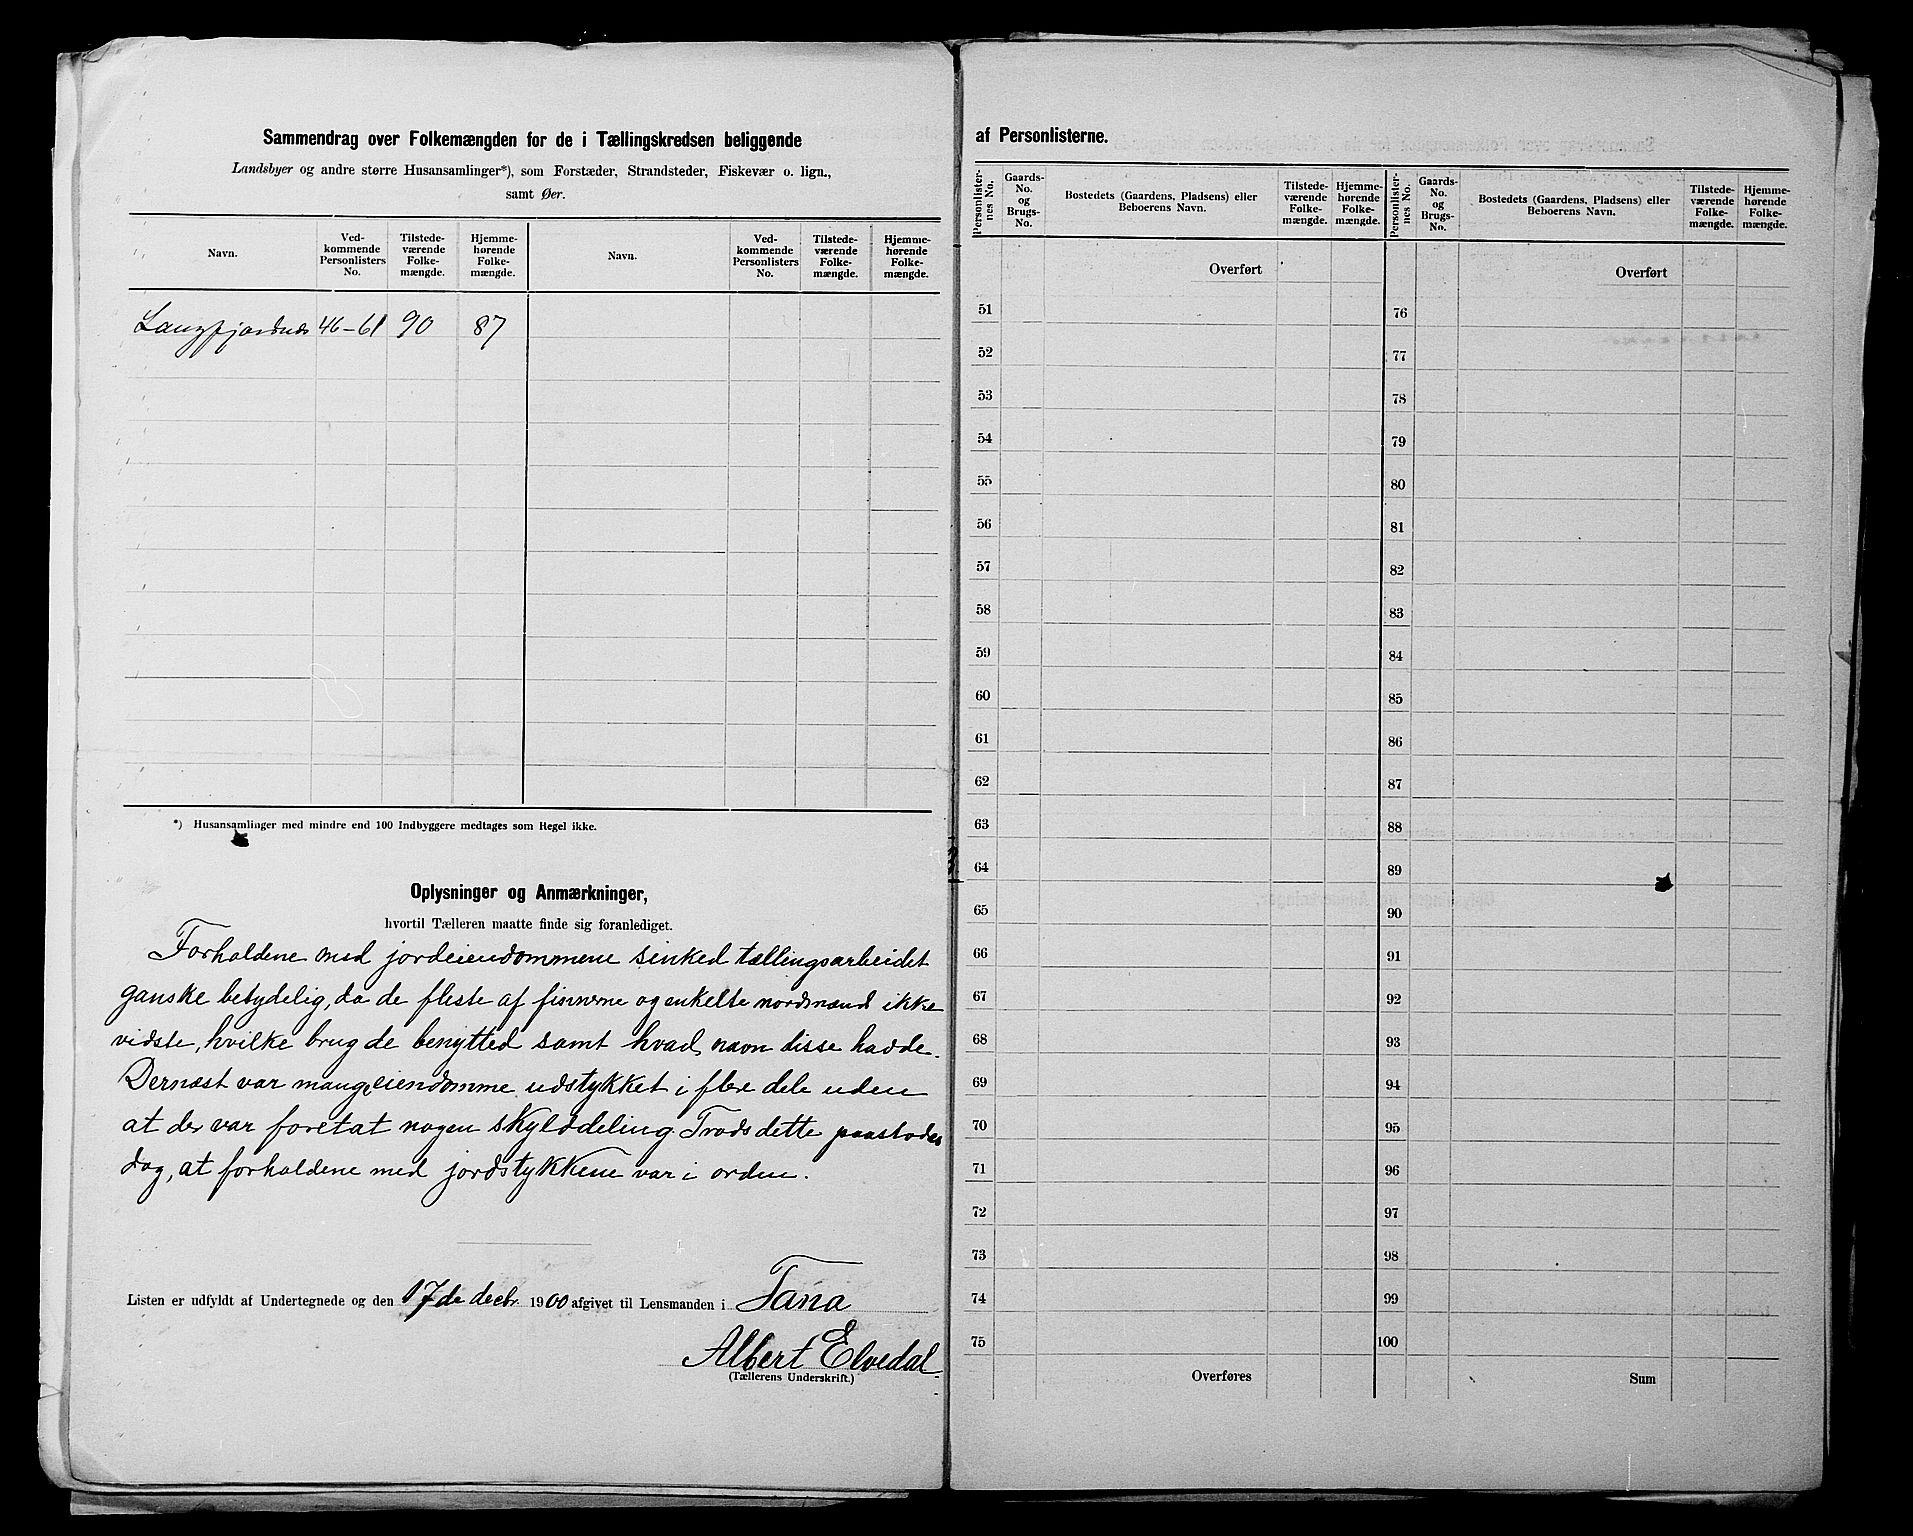 Sammendrag over Folkemængden for de i Tællingskredsen beliggende
Landsbyer og andre større Husansamlinger*), som Forstæder, Strandsteder, Fiskevær o. lign.,
samt Øer.
Navn. Ved-kommende Personlisters No. Tilstede-værende Folke-mængde. Hjemme-hørende Folke-mængde. Navn. Ved-kommende Personlisters No. Tilstede-værende Folke-mængde. Hjemme-hørende Folke-mængde.
Langfjordnes 46-61 90 87
*) Husansamlinger med mindre end 100 Indbyggere medtages som Regel ikke.
Oplysninger og Anmærkninger,
hvortil Tælleren maatte finde sig foranlediget.
Forholdene med jordeiendommene sinked tællingsarbeidet
ganske betydelig, da de fleste af finnerne og enkelte nordmænd ikke
vidste, hvilke brug de benytted samt hvad navn disse hadde.
Dernæst var mange eiendomme udstykket i flere dele uden
at der var foretat nogen skylddeling. Trods dette paastodes
dog, at forholdene med jordstykkene var i orden.
Listen er udfyldt af Undertegnede og den 17de decbr. 1900 afgivet til Lensmanden i Tana
Albert Elvedal
(Tællerens Underskrift.)
af Personlisterne.
Personlister-nes No. Gaards-No. og Brugs-No. Bostedets (Gaardens, Pladsens) eller Beboerens Navn. Tilstede-værende Folke-mængde. Hjemme-hørende Folke-mængde. Personlister-nes No. Gaards-No. og Brugs-No. Bostedets (Gaardens, Pladsens) eller Beboerens Navn. Tilstede-værende Folke-mængde. Hjemme-hørende Folke-mængde.
Overført Overført
51 76
52 77
53 78
54 79
55 80
56 81
57 82
58 83
59 84
60 85
61 86
62 87
63 88
64 89
65 90
66 91
67 92
68 93
69 94
70 95
71 96
72 97
73 98
74 99
75 100
Overføres Sum